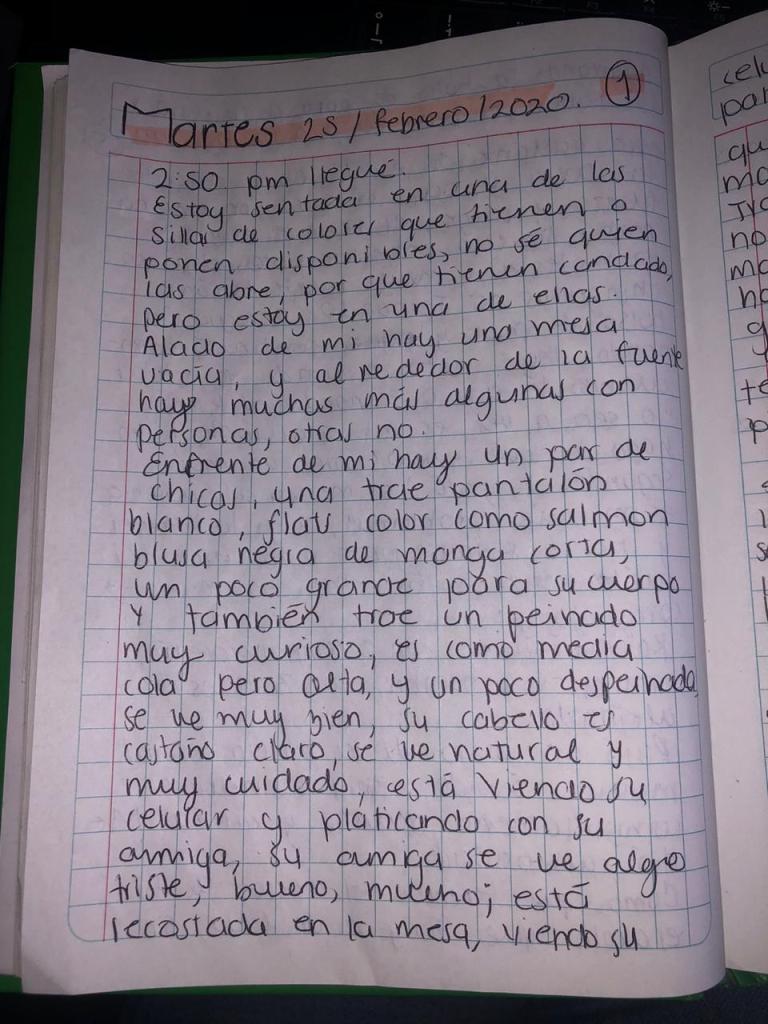 Martes 25/febrero/2020. 1
2:50 pm llegué.
Estoy sentada en una de las
sillas de colores que tienen o
ponen disponibles, no sé quien
las abre, por que tienen candado,
pero estoy en una de ellas.
Alado de mi hay una mesa
vacía, y al rededor de la fuente
hay muchas más algunas con
personas, otras no.
Enfrente de mi hay un par de
chicas, una trae pantalón
blanco, flats color como salmon
blusa negra de manga corta,
un poco grande para su cuerpo
y también trae un peinado
muy curioso, es como media
cola pero alta, y un poco despeinada
se ve muy bien, su cabello es
castaño claro, se ve natural y
muy cuidado, está viendo su
celular y platicando con su
amiga, su amiga se ve algo
triste, bueno, mucho; está
recostada en la mesa, viendo su
celu
par
qu
ma
no
ma
g
y
te
p